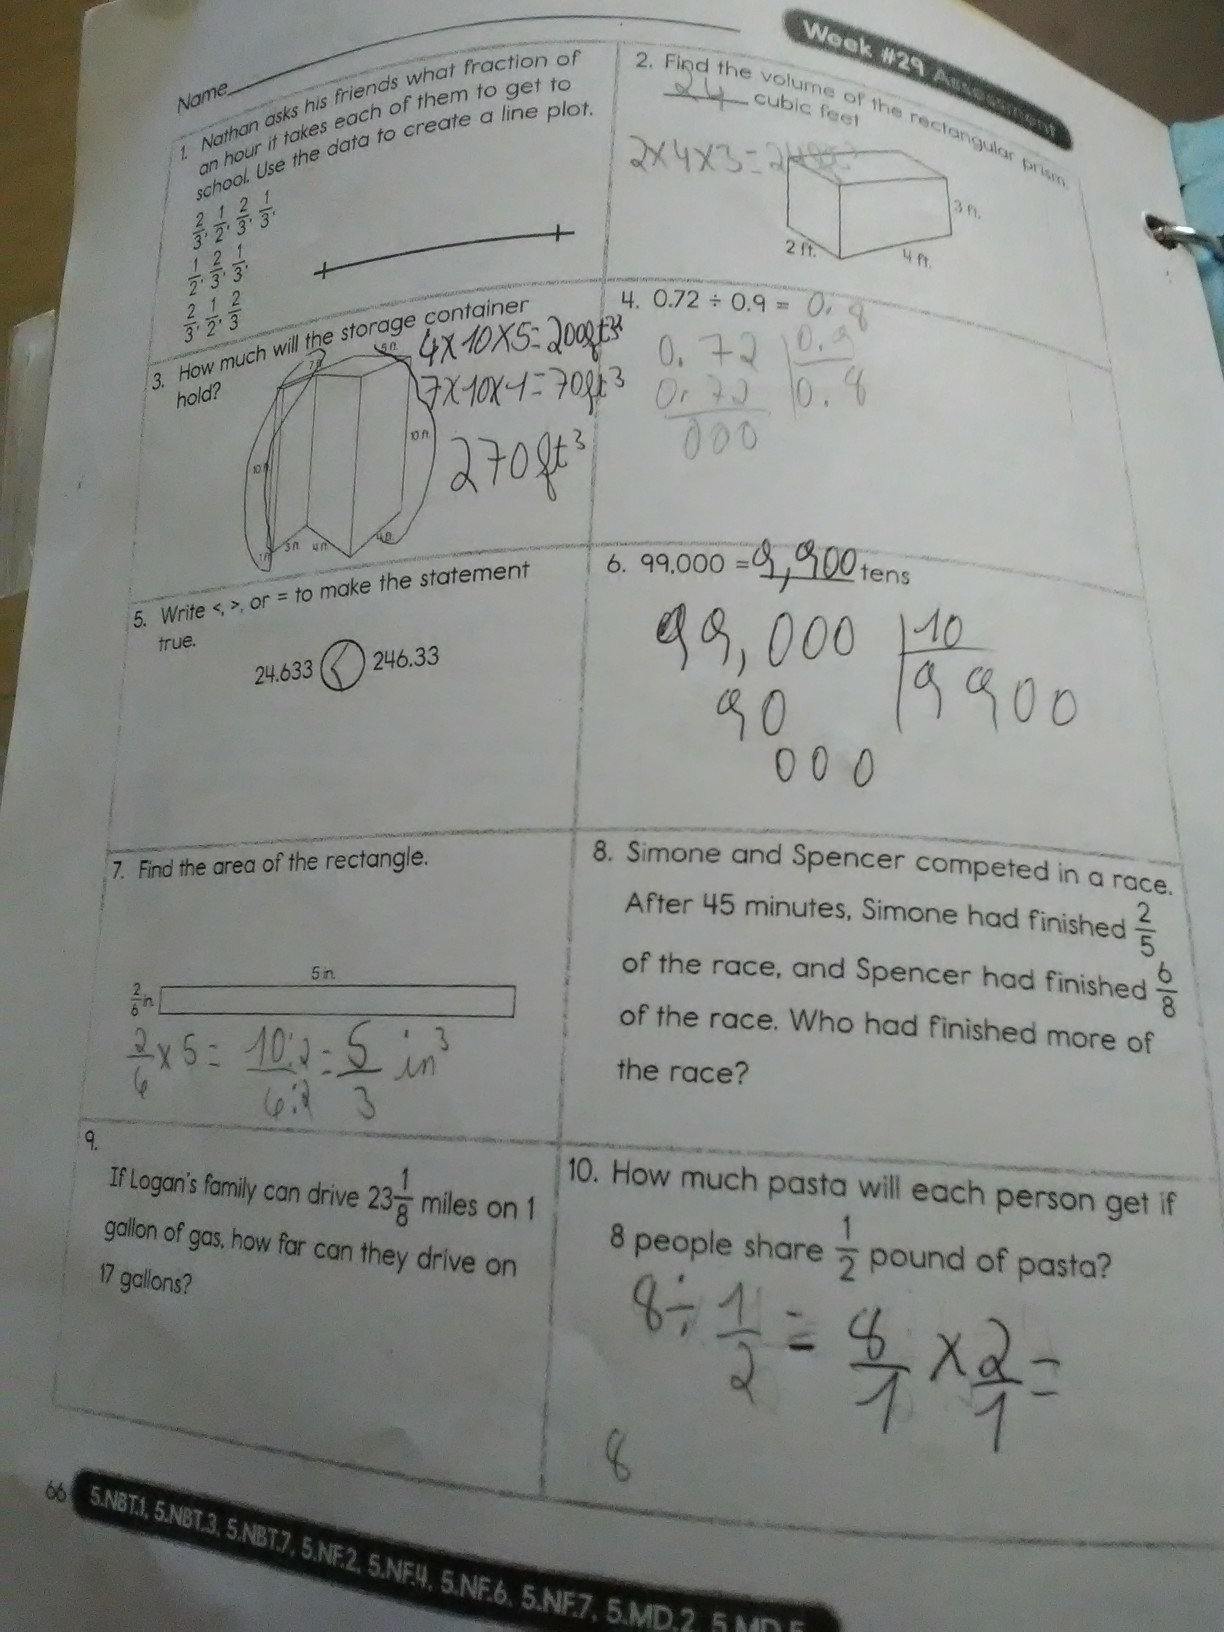 Week #29 Assessment
Name
1. Nathan asks his friends what fraction of
an hour it takes each of them to get to
school. Use the data to create a line plot.
2/3, 1/2, 2/3, 1/3,
1/2, 2/3, 1/3,
2/3, 1/2, 2/3
2. Find the volume of the rectangular prism.
24 cubic feet
2x4x3=24
3 ft.
2 ft.
4 ft.
3. How much will the storage container
hold?
4x10x5=200ft³
7x10x1=70ft³
270ft³
5 ft.
10 ft.
10 ft.
3 ft.
4 ft.
4. 0.72 ÷ 0.9 = 0.8
0.72 0.9
0.72 0.8
000
5. Write <, >, or = to make the statement
true.
24.633 < 246.33
6. 99,000 = 9,900 tens
99,000 10
90 9900
000
7. Find the area of the rectangle.
5 in.
2/6 in.
2/6 x 5 = 10:2/6:2 = 5/3 in³
8. Simone and Spencer competed in a race.
After 45 minutes, Simone had finished 2/5
of the race, and Spencer had finished 6/8
of the race. Who had finished more of
the race?
9.
If Logan's family can drive 23 1/8 miles on 1
gallon of gas, how far can they drive on
17 gallons?
10. How much pasta will each person get if
8 people share 1/2 pound of pasta?
8 ÷ 1/2 = 8/1 x 2/1 =
8
66
5.NBT.1, 5.NBT.3, 5.NBT.7, 5.NF.2, 5.NF.4, 5.NF.6, 5.NF.7, 5.MD.2, 5.MD.5